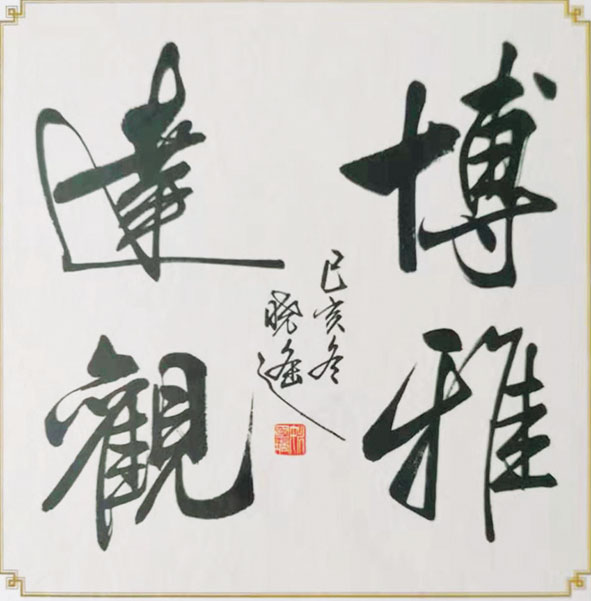 博雅
達觀
己亥冬
曉遙